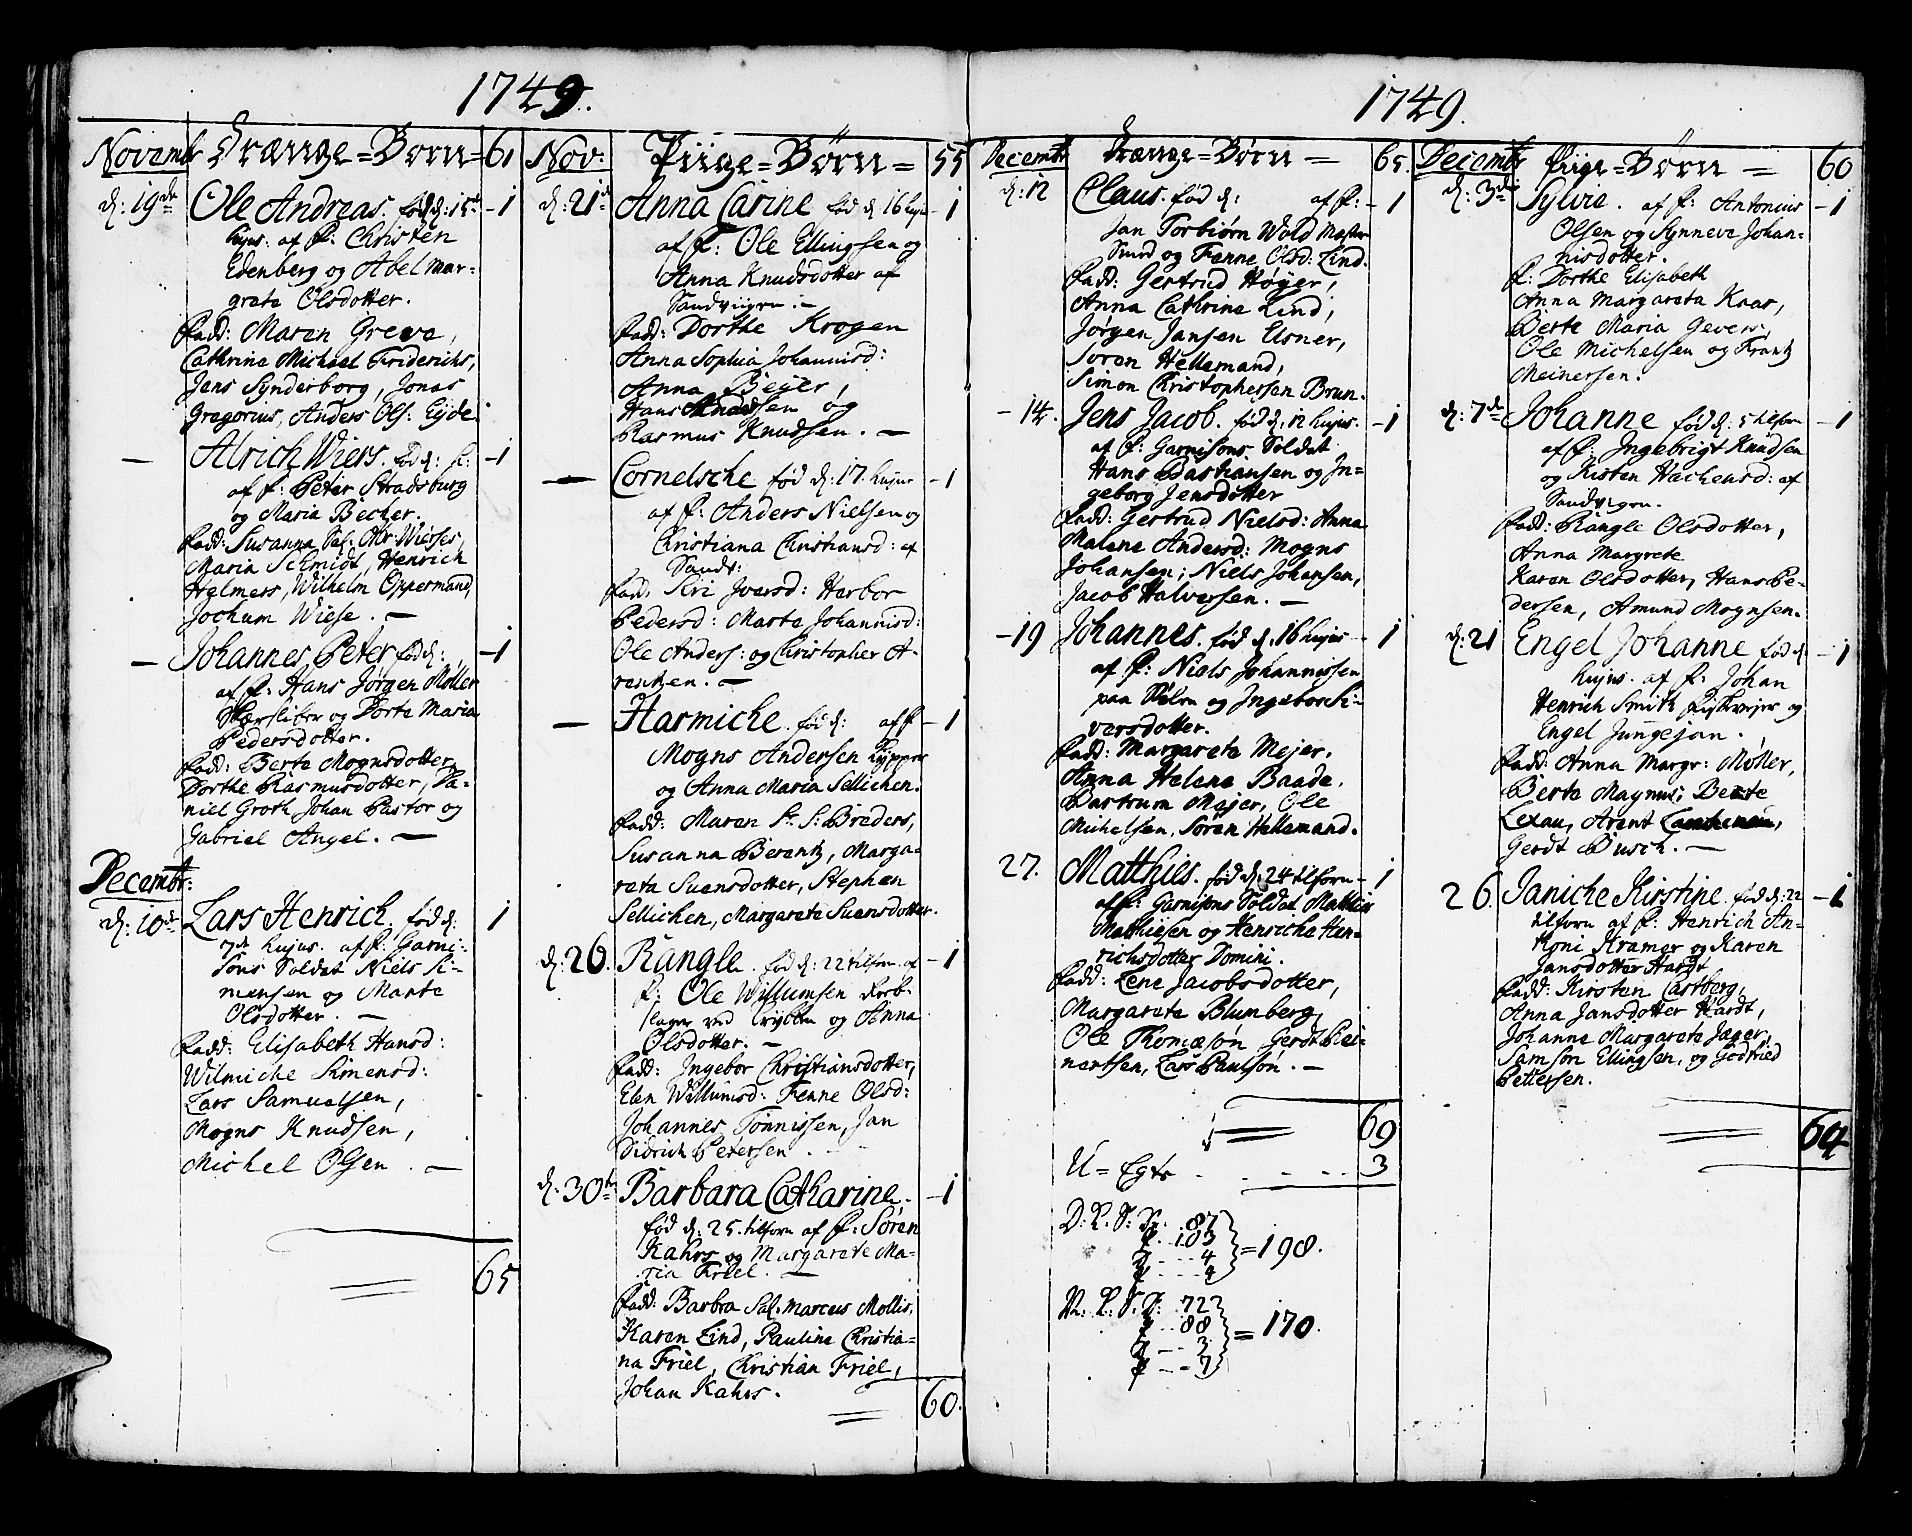 1749.
Novembr Drænge=Børn= 61
d: 19de Ole Andreas. fød d: 15de -1
hujus. af F: Christen
Edenberg og Abel Mar-
grete Olsdotter.
fadd: Maren Greve,
Cathrine Michael Friderichs,
Jens Synderborg, Jonas
Gregorius, Anders Ols: Eyde.
— Alrich Wiers. fød d: -1
af F: Peter Stradsburg
og Maria Becker.
fadd: Susanna Sal. Mr Wierses,
Maria Schmidt, Henrich
Helmers, Wilhelm Opperman,
Jochum Wiese. —
— Johannes Peter. fød d: -1
af F: Hans Jørgen Møller
og Dorte Maria
Pedersdotter.
fadd: Berte Mognsdotter,
Dorthe Rasmusdotter, Da-
niel Groth, Johan Pastor og
Gabriel Angel. —
Decembr:
d: 10de Lars Henrich. fød d: 1
7de hujus. af F: Garni-
sons Soldat Niels Si-
mensen og Marte
Olsdotter. —
fadd: Elisabeth Hansd:
Wilmiche Simensd:
Lars Samuelsen,
Mogns Knudsen,
Michel Olsen. —
65
Nov: Piige=Børn= 55
d: 21de Anna Carine fød d 16 hujus -1
af F: Ole Ellingsen og
Anna Knudsdotter af
Sandviigen. —
fadd: Dorthe Krogen
Anna Sophia Johannisd:
Anna Beyer,
Hans Knudsen og
Rasmus Knudsen. —
— Cornelsche fød d: 17. hujus -1
af F: Anders Nielsen og
Christiana Christiansd: af
Sandv:
fad: Siri Iversd: Harbor
Pedersd: Marta Johannisd:
Ole Anders: og Christopher A-
rentzen. —
— Harmiche. fød d: af F -1
Mogns Andersen Kypper
og Anna Maria Sellichen.
fadd: Maren Sr. S: Breders,
Susanna Berentz, Marga-
reta Suensdotter, Stephen
Sellichen, Margarete Suensdotter.
d: 26. Rangle. fød d: 22 tilforn. af -1
F: Ole Willumsen Reeb-
slager ved og Anna
Olsdotter. —
fadd: Ingebor Christiansdotter,
Elen Willumsd: Fenne Olsd:
Johannes Tønnissen, Jan
Didrich Petersen
d: 30te Barbara Catharine. -1
fød d: 25. tilforn af F: Søren
Kahrs og Margarete Ma-
ria Friel. —
fadd: Barbra Sal. Marcus Mollis,
Karen Lind, Pauline Christia-
na Friel, Christian Friel,
Johan Kahrs.
60.
1749.
Decembr Drænge=Børn= 65.
d: 12 Claus. fød d: af F: -1
Jan Torbiørn Wold Mester
Smed og Fenne Olsd: Lind.
fadd: Gertrud Høyer,
Anna Cathrine Lind,
Jørgen Jansen Elsner,
Soren Hellemand,
Simon Christophersen Brun.
-14. Jens Jacob. fød d: 12 hujus. -1
af F: Garnisons Soldat
Hans Bastiansen og In-
geborg Jensdotter
fadd: Gertrud Nielsd: Anna
Malene Andersd: Mogns
Johansen, Niels Johansen,
Jacob Halversen. —
-19 Johannes. fød d. 16 hujus -1
af F: Niels Johannessen
paa og Ingebor Si-
versdotter.
fadd: Margareta Mejer,
Anna Helena Baade,
Bastrum Majer, Ole
Michelsen, Søren Hellemand.
27. Matthies. fød d: 24 tilforn -1
af F: Garnisons Soldat Mathis
Mathiesen og Henriche Hen-
richsdotter Domini.
fadd: Lene Jacobsdotter,
Margareta Blumberg,
Ole Thomæsøn Gerdt Rei-
nertsen, Lars Paulsøn. —
69
U=Egte 3
D: K: S: Dr. 87
P. 103
D. 4
P. 4
= 198.
N: K: S: D: 72
P. 88
D. 3
P. 7
= 170.
Decembr Piige=Børn= 60
d: 3de Sylvie. af F: Antonius -1
Olsen og Synneve Johan-
nisdotter.
f: Dorthe Elisabeth
Anna Margareta Kaas,
Berte Maria Gevers,
Ole Michelsen og Frantz
Meinersen.
d: 7de Johanne fød d: 5 tilforn -1
af F: Ingebrigt Knudsen
og Kisten Hachensd: af
Sandvigen.
fadd: Rangle Olsdotter,
Anna Margrete
Karen Olsdotter, Hans Pe-
dersen, Amund Mognsen.
d: 21 Engel Johanne fød d -1
hujus. af F: Johan
Henrich Smith og
Engel Jungejan.
fadd: Anna Margr: Møller,
Berte Magnus; Berte
Lexau, Arent
Gerdt Busch. —
26. Janiche Kirstine. fød d: 22 -1
tilforn af F: Henrich An-
toni Kramer og Karen
Jansdotter Hardt
fadd: Kirsten Castberg,
Anna Jansdotter Hardt,
Johanne Margarete Jæger,
Samson Ellingsen, og Godtfried
Pettersen.
64